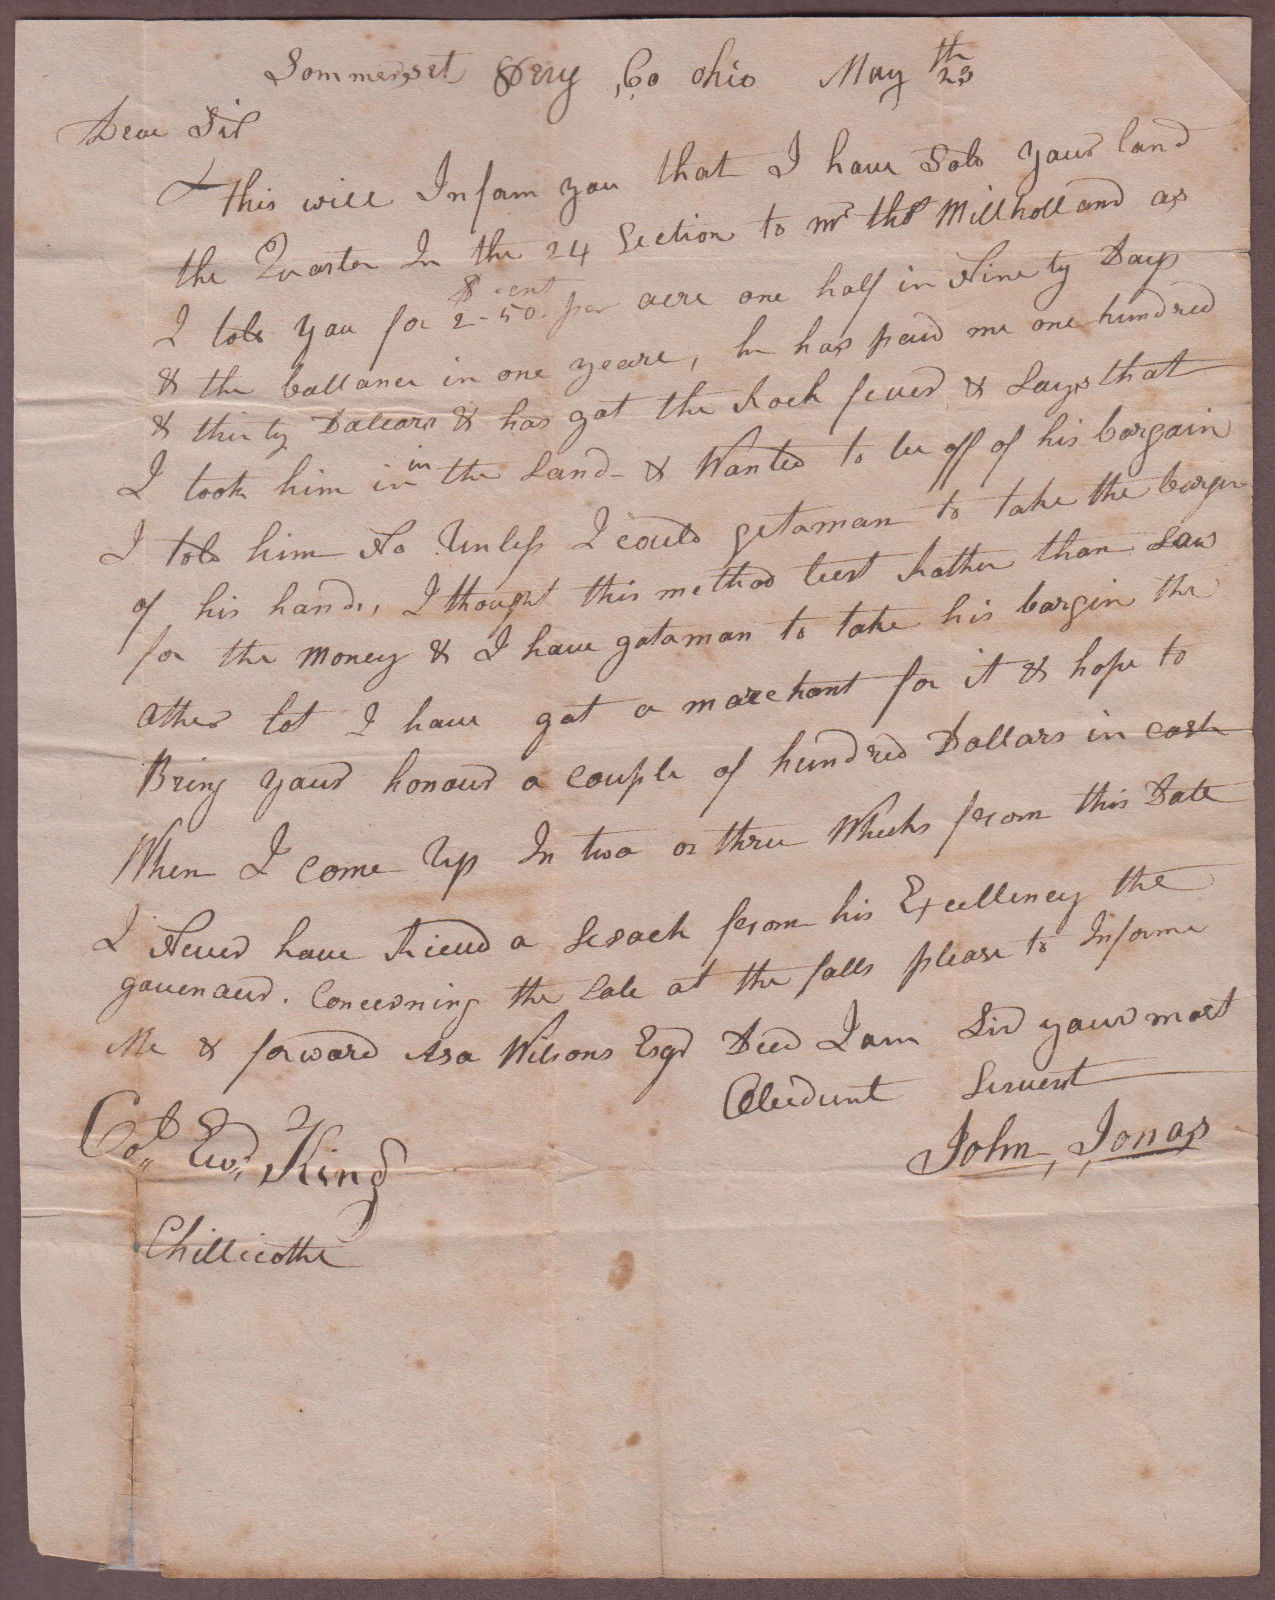 Sommersset Pery Co ohio May 23th
Dear Sir
this will Inform you that I have Sold your land
the Quarter In the 24 Section to Mr thos Millholland as
I told you for $2-50 cent per acre one half in Ninety Days
& the ballance in one yeare, he has paid me one hundred
& thirty Dallears & has got the Rock fever & Says that
I took him in in the Land - & Wanted to be off of his bargain
I told him No Unless I could get a man to take the bargin
of his hands, I thought this method best Rather than Law
for the Money & I have got a man to take his bargin the
other lot I have got a marchant for it & hope to
Bring your honour a couple of hundred Dollars in cash
When I come Up In two or three Wheeks from this Date
I Never have Rieved a Scrach from his Excellency the
governour. Concerning the Sale at the falls please to Informe
Me & forward Asa Wilsons Esqr Deed I am Sir your most
Obediunt Servent
John, Jonas
Col,, Ewd,, King
Chillicothe